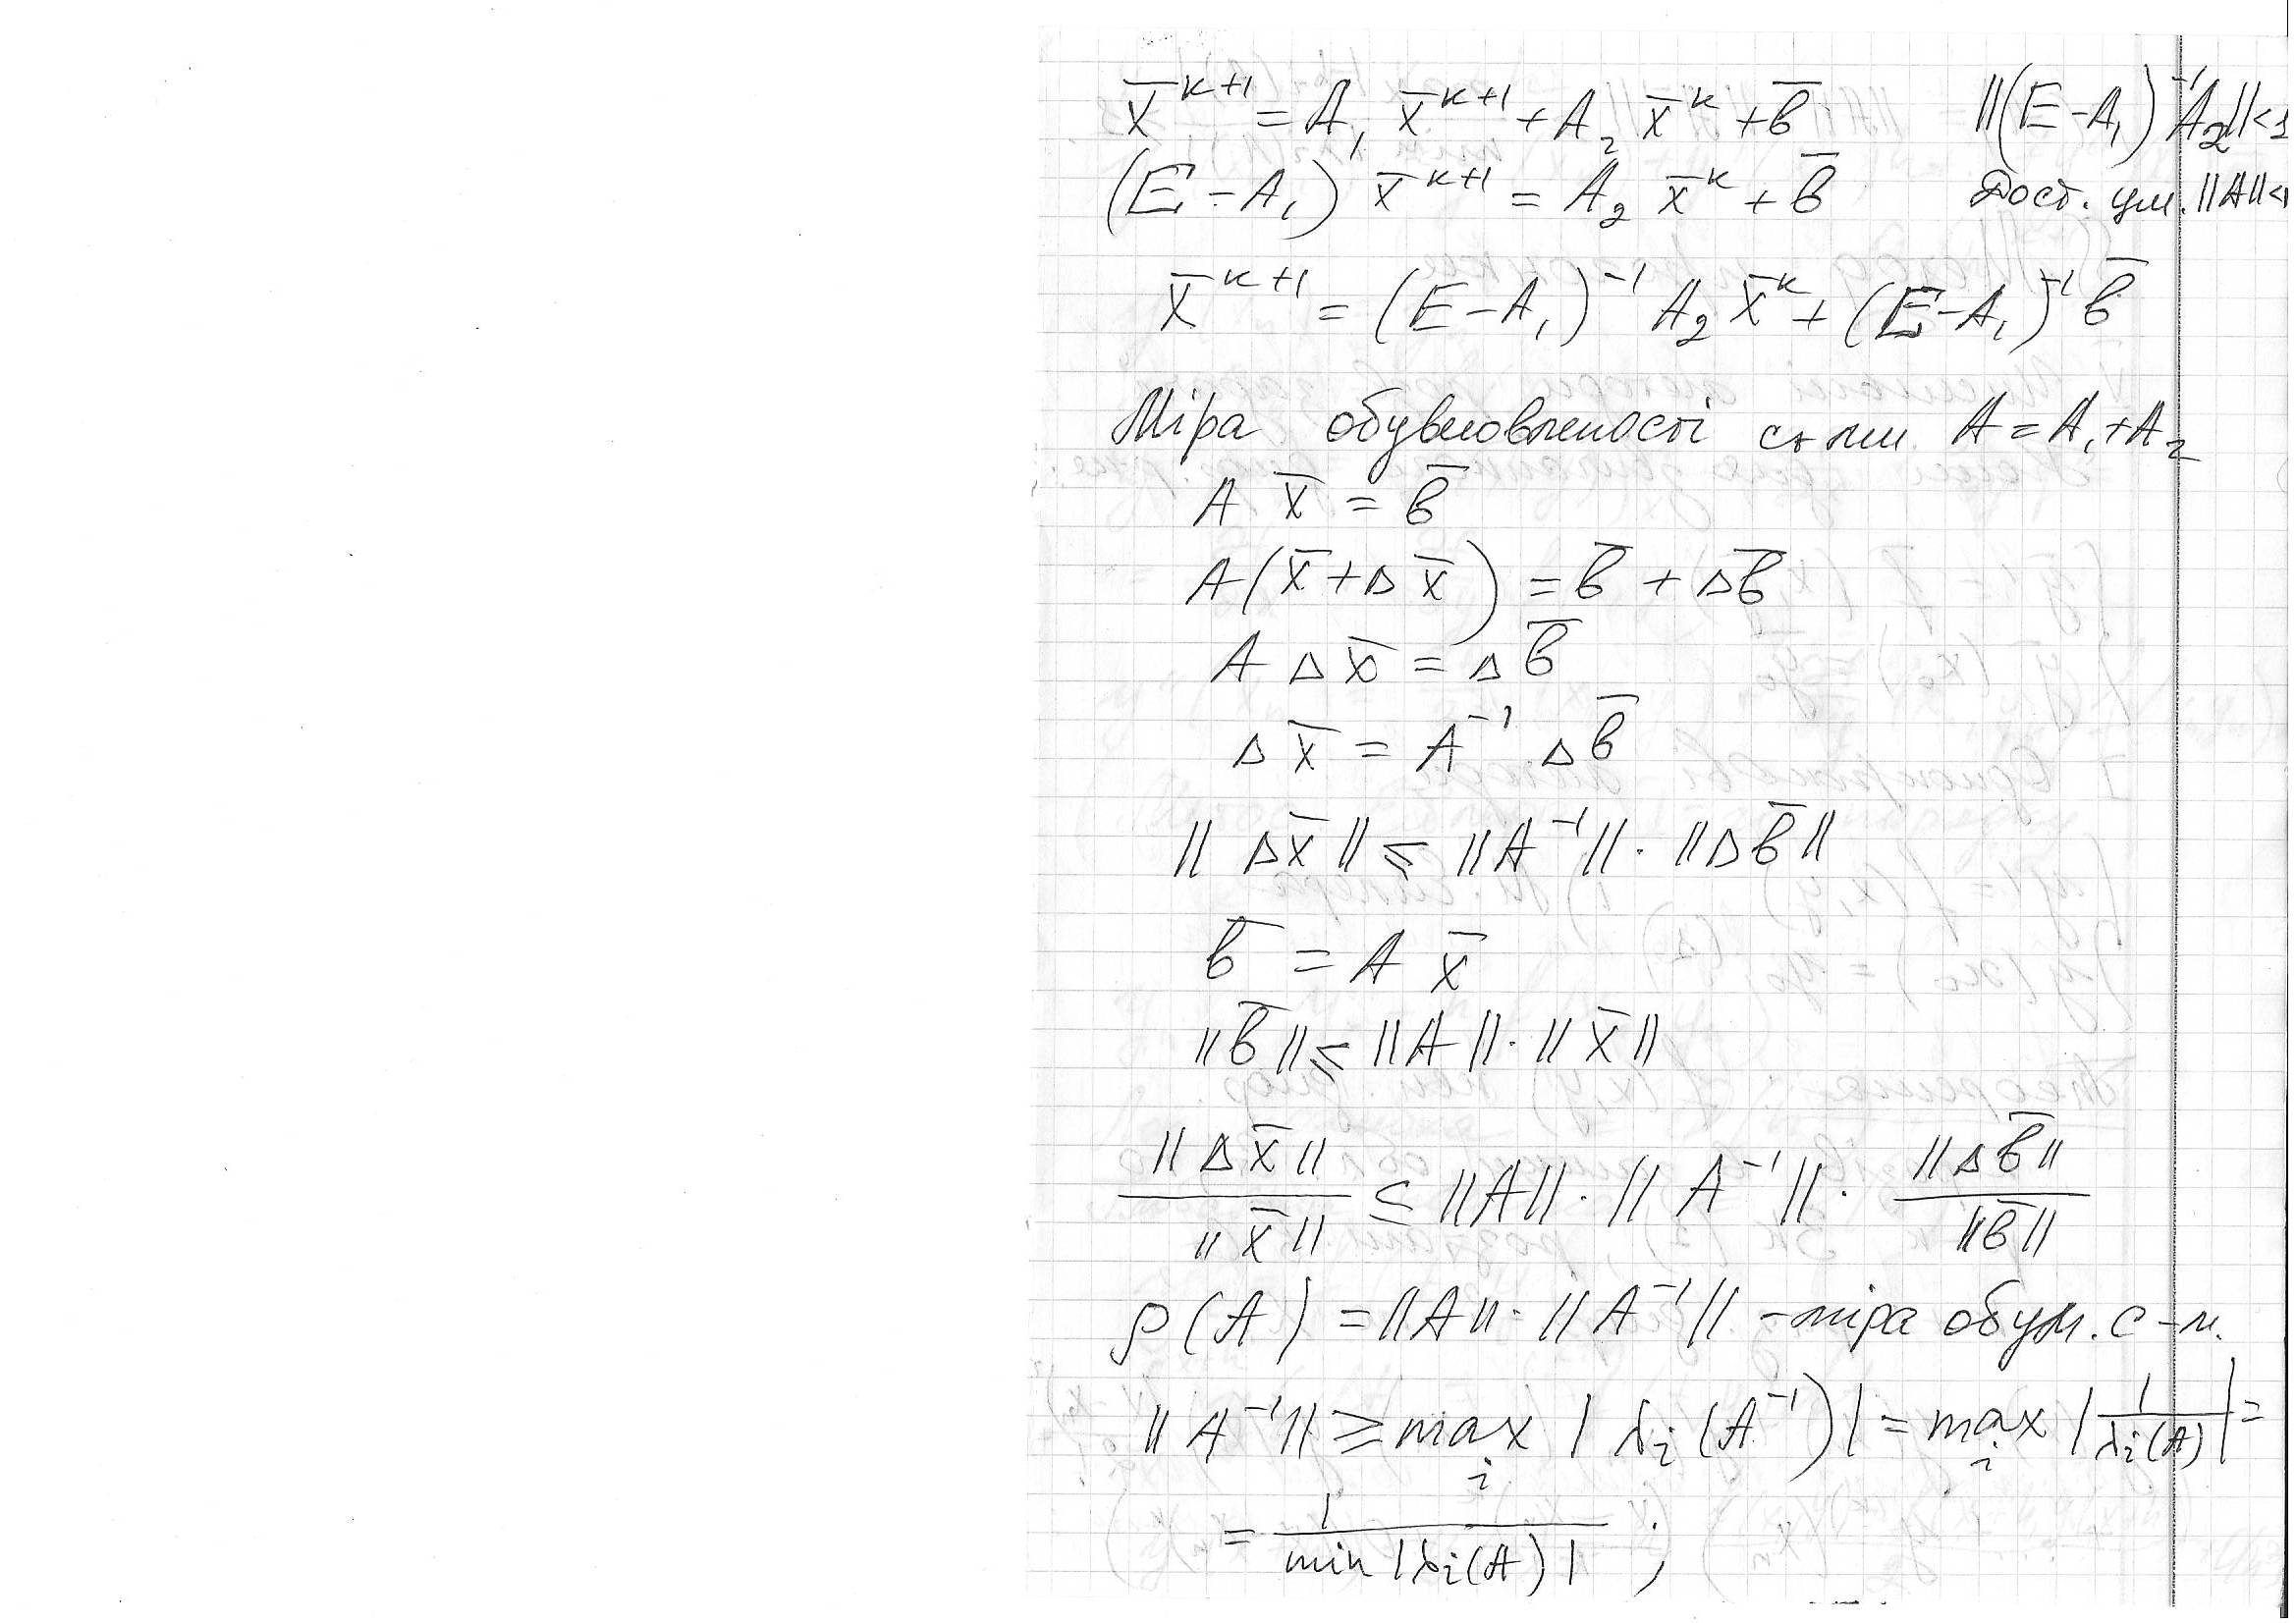 x̄ᵏ⁺¹ = A₁ x̄ᵏ⁺¹ + A₂ x̄ᵏ + b̄     ||(E - A₁)⁻¹A₂|| < 1
(E - A₁) x̄ᵏ⁺¹ = A₂ x̄ᵏ + b̄     Дост. ум. ||A|| < 1
x̄ᵏ⁺¹ = (E - A₁)⁻¹ A₂ x̄ᵏ + (E - A₁)⁻¹ b̄
Міра обумовленості с-ми A = A₁ + A₂
A x̄ = b̄
A(x̄ + Δx̄) = b̄ + Δb̄
A Δx̄ = Δb̄
Δx̄ = A⁻¹ Δb̄
||Δx̄|| ≤ ||A⁻¹|| · ||Δb̄||
b̄ = A x̄
||b̄|| ≤ ||A|| · ||x̄||
||Δx̄|| / ||x̄|| ≤ ||A|| · ||A⁻¹|| · ||Δb̄|| / ||b̄||
ρ(A) = ||A|| · ||A⁻¹|| - міра обум. с-м.
||A⁻¹|| ≥ max_i |λᵢ(A⁻¹)| = max_i |1/λᵢ(A)| =
= 1 / min |λᵢ(A)| ;